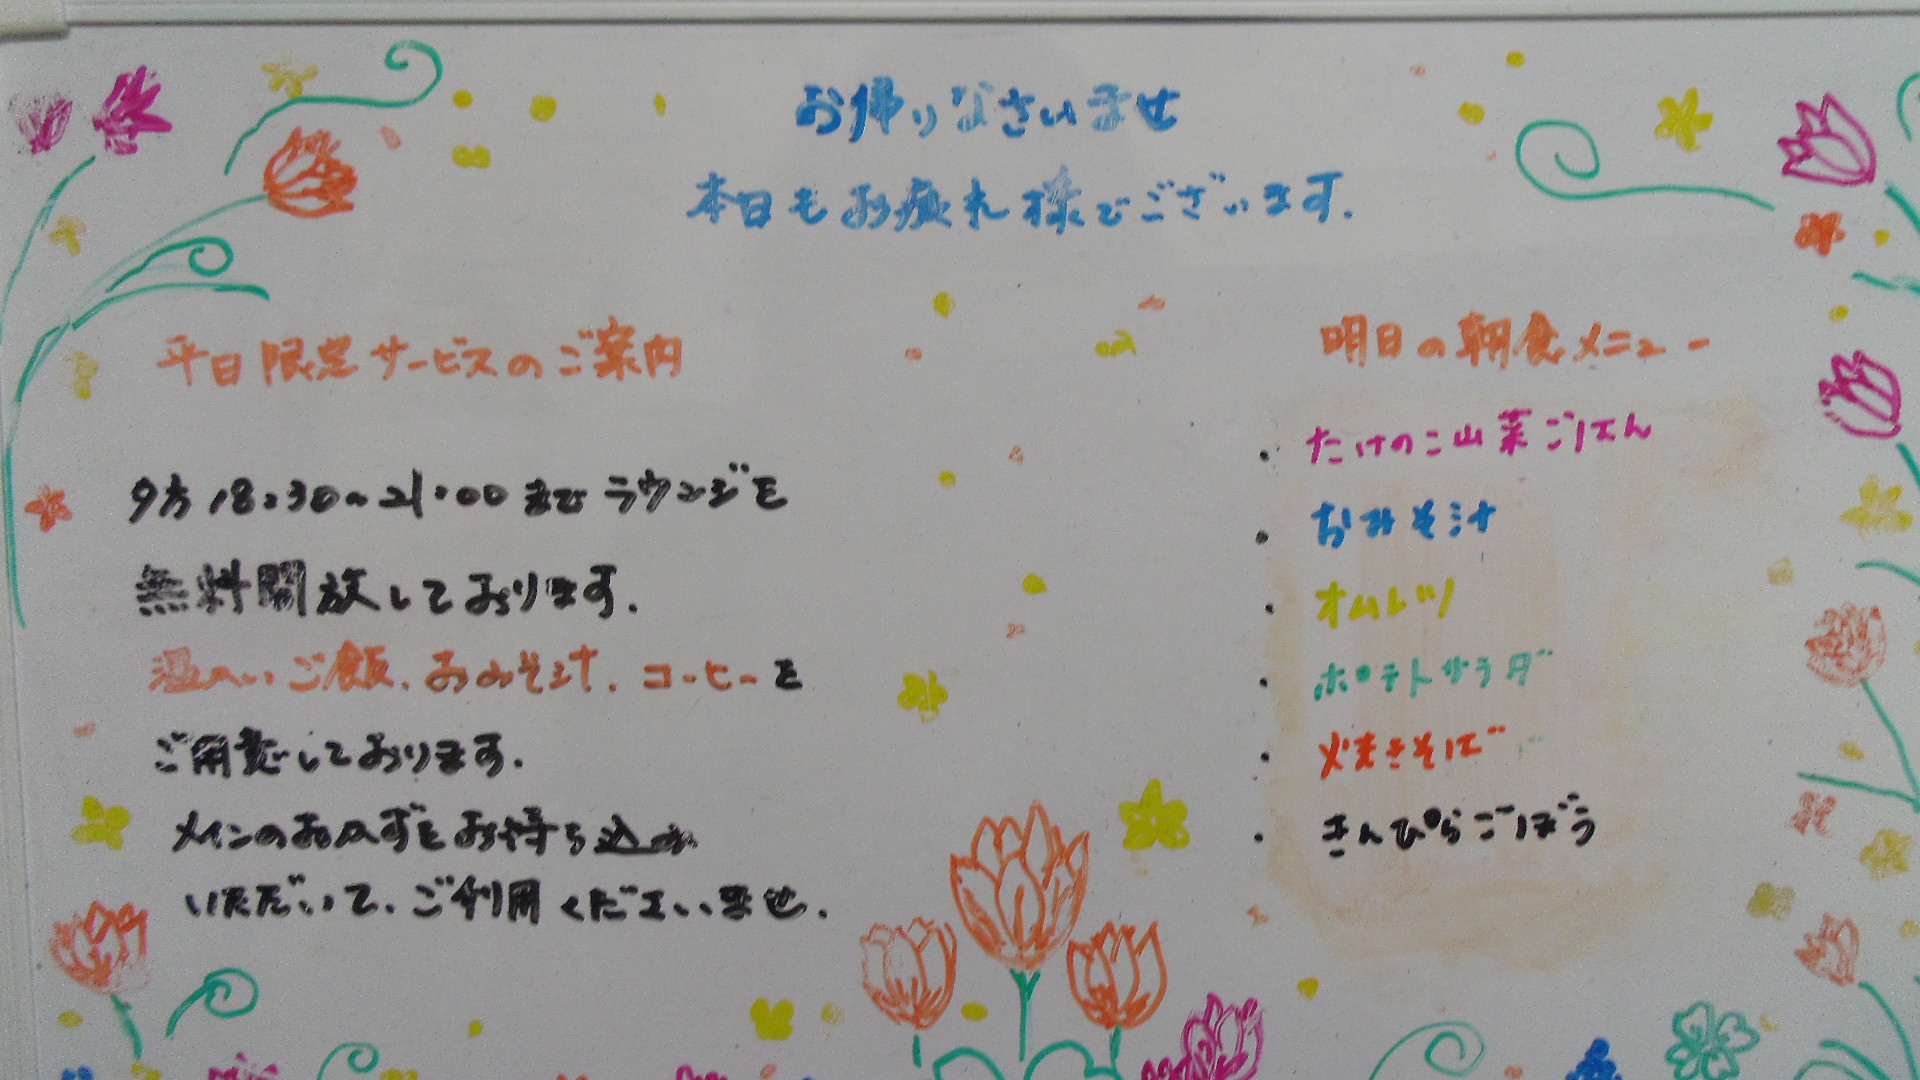 お帰りなさいませ
本日もお疲れ様でございます.
平日限定サービスのご案内
夕方18:30~21:00までラウンジを
無料開放しております.
温かいご飯.おみそ汁.コーヒーを
ご用意しております.
メインのおかずをお持ち込み
いただいて.ご利用くださいませ.
明日の朝食メニュー
・たけのこ山菜ごはん
・おみそ汁
・オムレツ
・ポテトサラダ
・焼きそば
・きんぴらごぼう